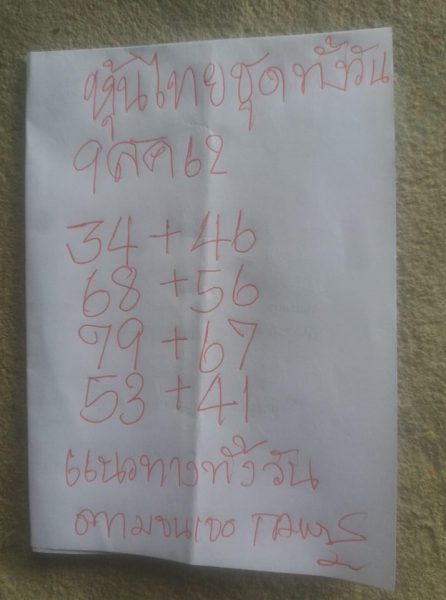 หุ้นไทยชุดทั้งวัน
9สค62
34+46
68+56
79+67
53+41
แนวทางทั้งวัน
ตามจนเจอ